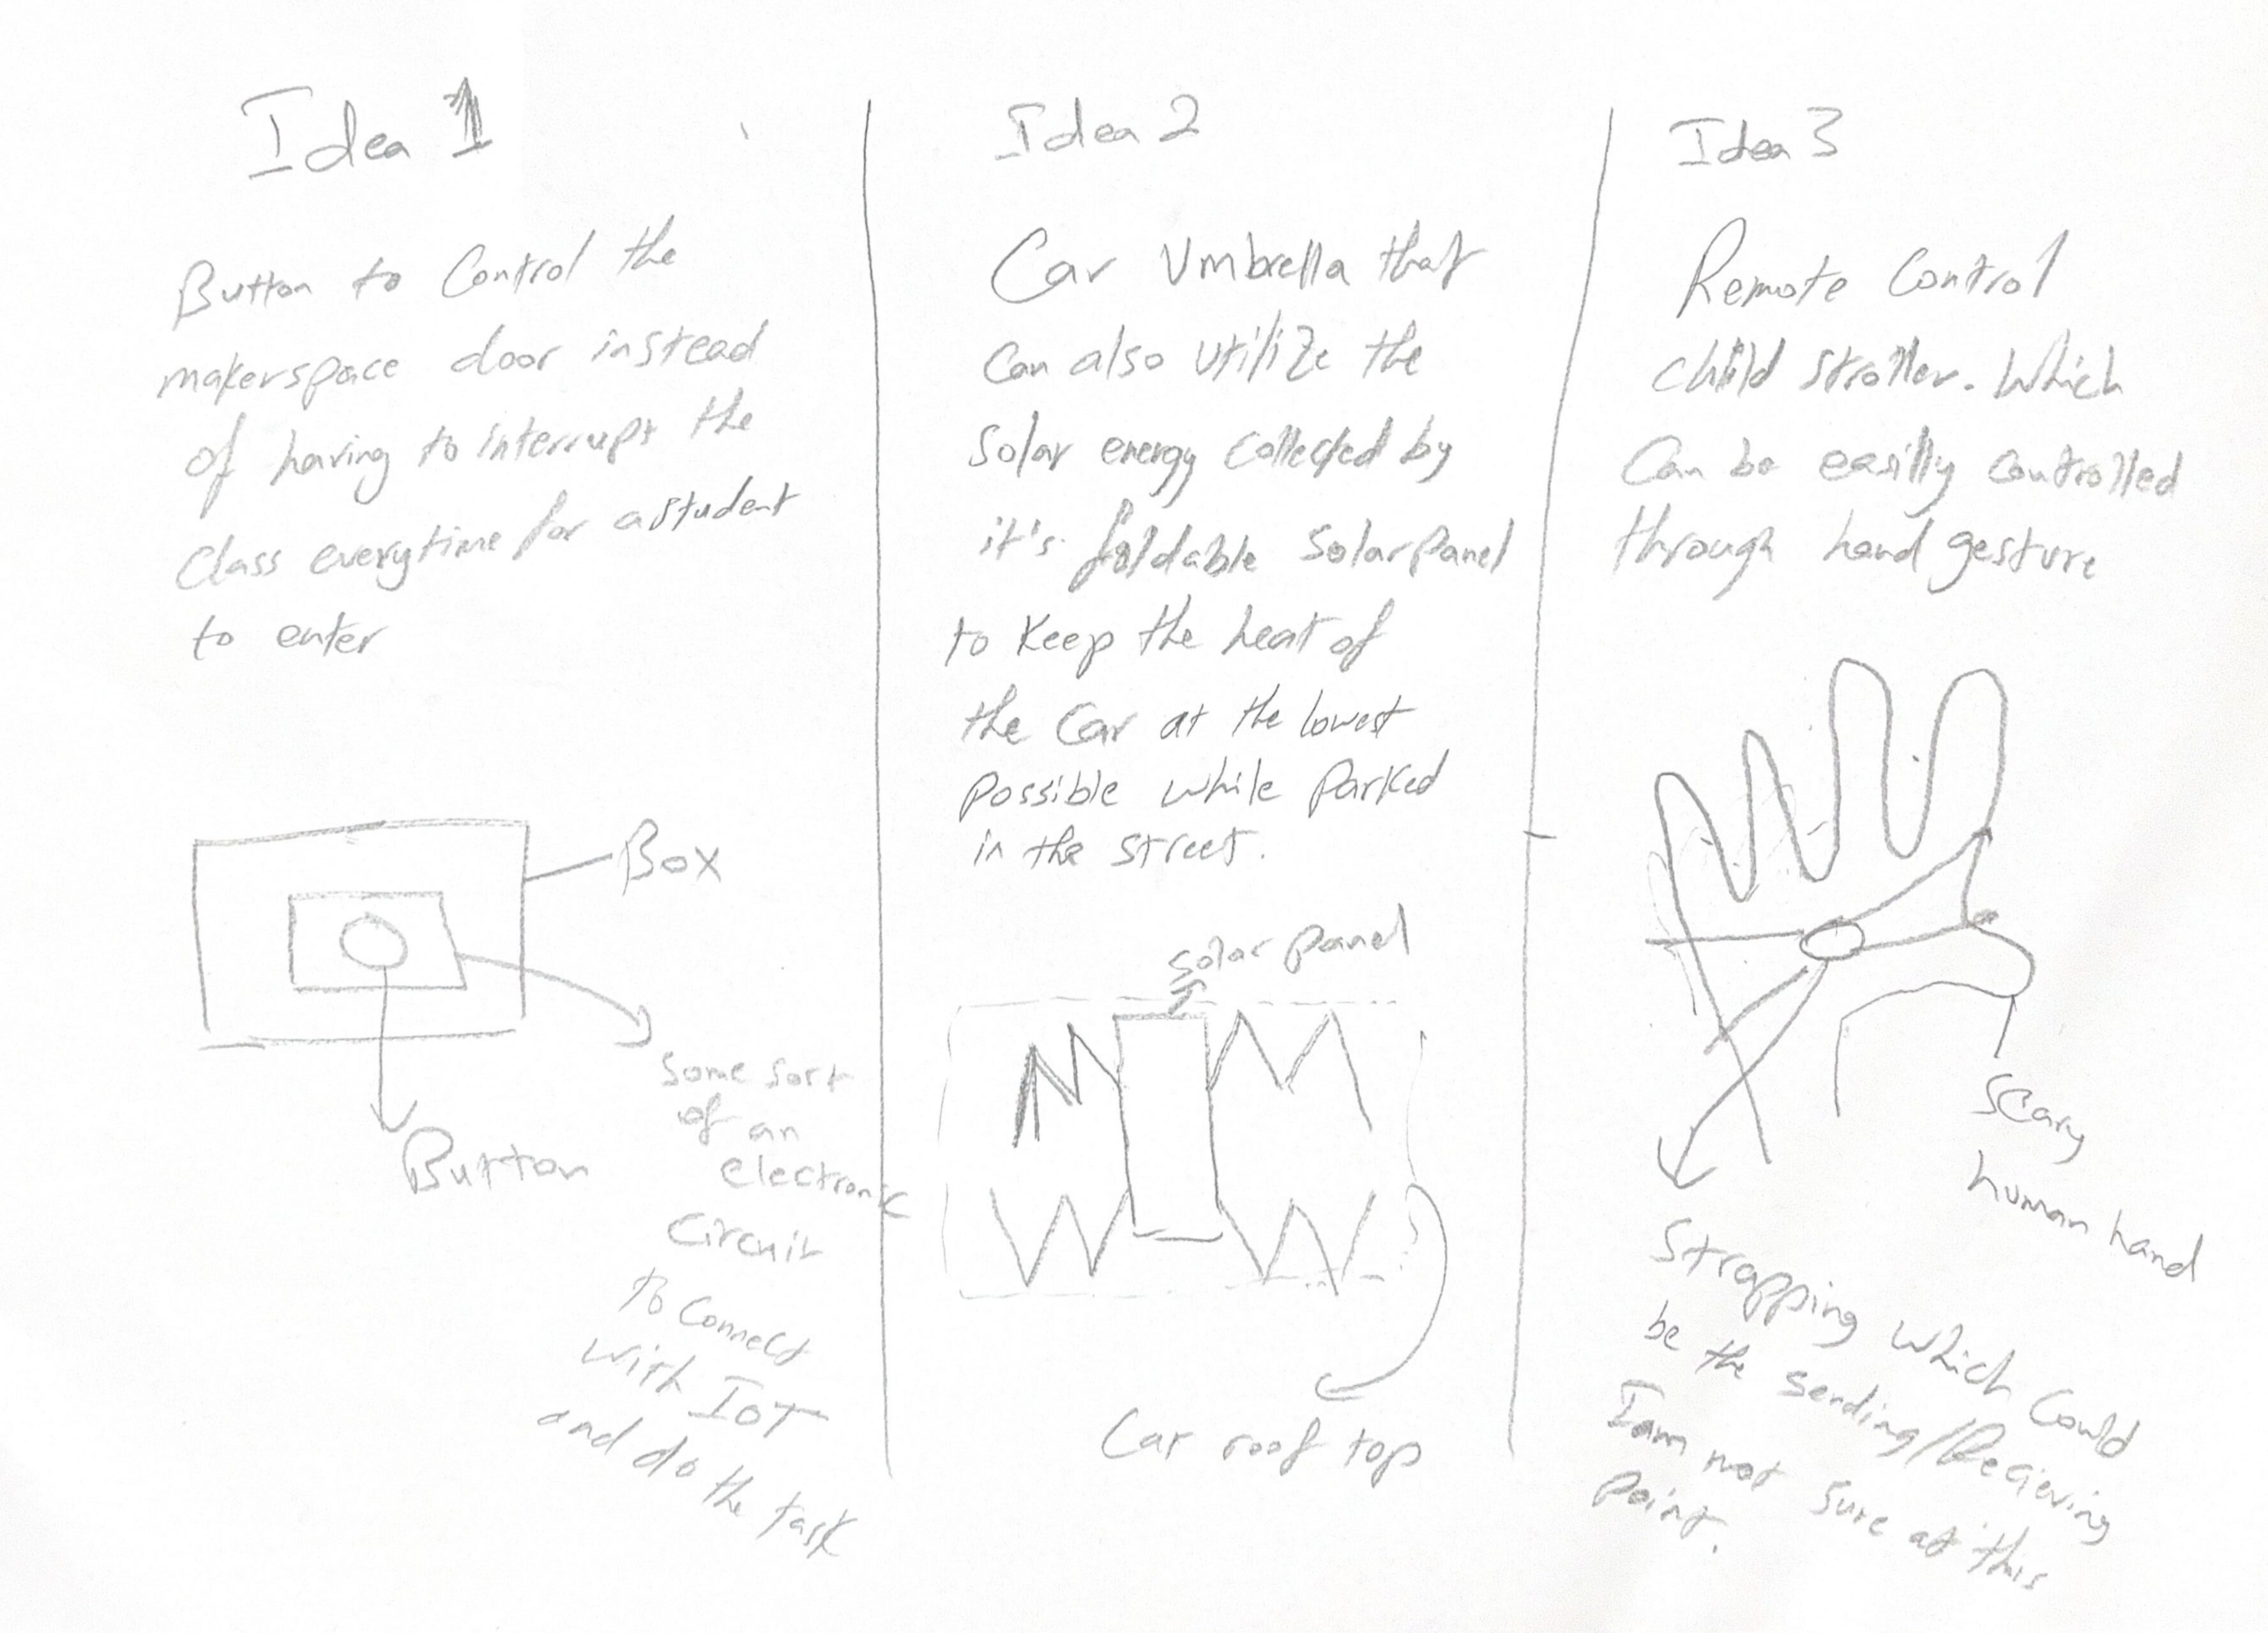 Idea 1
Button to Control the
makerspace door instead
of having to interrupt the
class everytime for a student
to enter
Box
Button
Some sort
of an
electronic
circuit
to connect
with IOT
and do the task
Idea 2
Car Umbrella that
can also utilize the
solar energy collected by
it's foldable solar panel
to keep the heat of
the car at the lowest
possible while parked
in the street.
solar panel
Car roof top
Idea 3
Remote Control
child stroller. Which
can be easilly controlled
through hand gesture
Scary
human hand
Strapping which could
be the sending/Recieving
I am not sure at this
point.